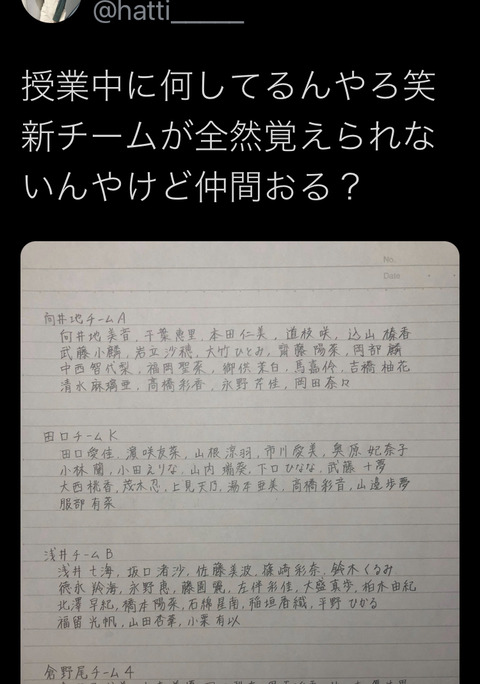 @hatti______
授業中に何してるんやろ笑
新チームが全然覚えられな
いんやけど仲間おる？
No.
Date
向井地チームA
向井地美音, 千葉恵里, 本田仁美, 道枝咲, 込山榛香
武藤小麟, 岩立沙穂, 大竹ひとみ, 齊藤陽菜, 岡部麟
中西智代梨, 福岡聖菜, 御供茉白, 馬嘉伶, 吉橋柚花
清水麻璃亜, 髙橋彩香, 永野芹佳, 岡田奈々
田口チームK
田口愛佳, 濵咲友菜, 山根涼羽, 市川愛美, 奥原妃奈子
小林蘭, 小田えりな, 山内瑞葵, 下口ひなな, 武藤十夢
大西桃香, 茂木忍, 上見天乃, 湯本亜美, 髙橋彩音, 山邊歩夢
服部有菜
浅井チームB
浅井七海, 坂口渚沙, 佐藤美波, 篠崎彩奈, 鈴木くるみ
德永羚海, 永野恵, 藤園麗, 左伴彩佳, 大盛真歩, 柏木由紀
北澤早紀, 橋本陽菜, 石綿星南, 稲垣香織, 平野ひかる
福留光帆, 山田杏華, 小栗有以
倉野尾チーム4